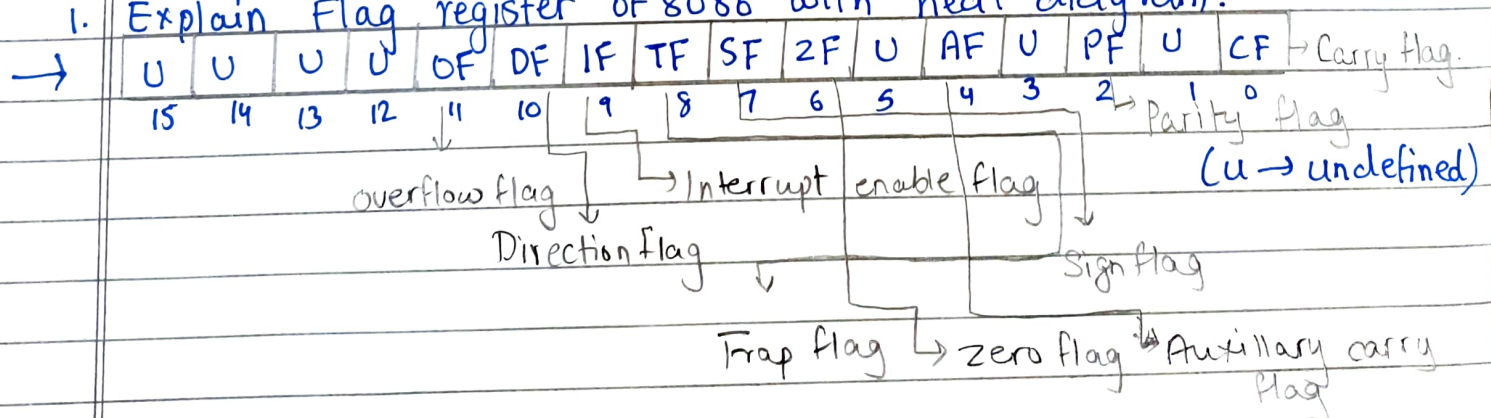 1. Explain Flag register of 8086 with neat diagram.
→ U U U U OF DF IF TF SF ZF U AF U PF U CF → Carry flag.
15 14 13 12 11 10 9 8 7 6 5 4 3 2 1 0
Parity flag
(u → undefined)
overflow flag
Interrupt enable flag
Direction flag
Sign flag
Trap flag
zero flag
Auxillary carry
flag